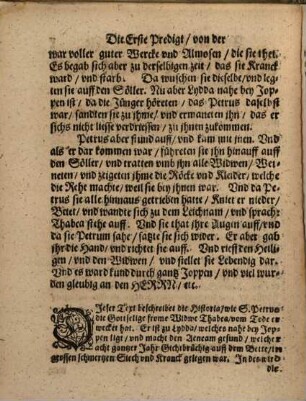 Die Erste Predigt / von der
war voller guter Wercke vnd Almosen / die sie thet.
Es begab sich aber zu derselbigen zeit / das sie Kranck
ward / vnd starb. Da wuschen sie dieselbe / vnd leg-
ten sie auff den Söller. Nu aber Lydda nahe bey Jop-
pen ist / da die Jünger höreten / das Petrus daselbst
war / sandten sie zu ihme / vnd ermaneten ihn / das er
sichs nicht liesse verdriessen / zu ihnen zukommen.
Petrus aber stund auff / vnd kam mit jnen. Vnd
als er dar kommen war / führeten sie ihn hinauff auff
den Söller / vnd tratten vmb ihn alle Widwen / Wei-
neten / vnd zeigeten ihme die Röcke vnd Kleider / welche
die Rehe machte / weil sie bey ihnen war. Vnd da Pe-
trus sie alle hinnaus getrieben hatte / Kniet er nieder /
Betet / vnd wandte sich zu dem Leichnam / vnd sprach:
Thabea stehe auff. Vnd sie that ihre Augen auff / vnd
da sie Petrum sahe / satzte sie sich wider. Er aber gab
ihr die Hand / vnd richtet sie auff. Vnd rieff den Heili-
gen / vnd den Widwen / vnd stellet sie Lebendig dar.
Vnd es ward kund durch gantz Joppen / vnd viel wur-
den gleubig an den HERRN / etc.
Dieser Text beschreibet die Historia / wie S. Petrus
die Gottselige frome Widwe Thabea / vom Tode er-
wecket hat. Er ist zu Lydda / welches nahe bey Jop-
pen ligt / vnd macht den Aeneam gesund / welcher
acht gantzer Jahr Gichtbrüchig auff dem Bette / in
grossen schmertzen Siech vnd Kranck gelegen war. In des wird
die